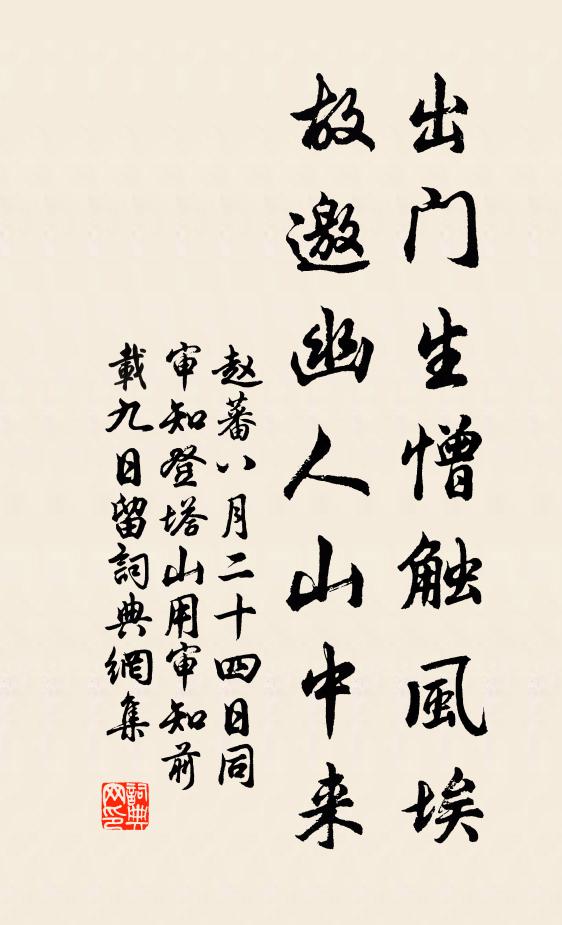 出门生憎触風埃
故邀幽人山中来
赵蕃八月二十四日同
审知登塔山用审知前
載九日留詞典網集
詞典
网印